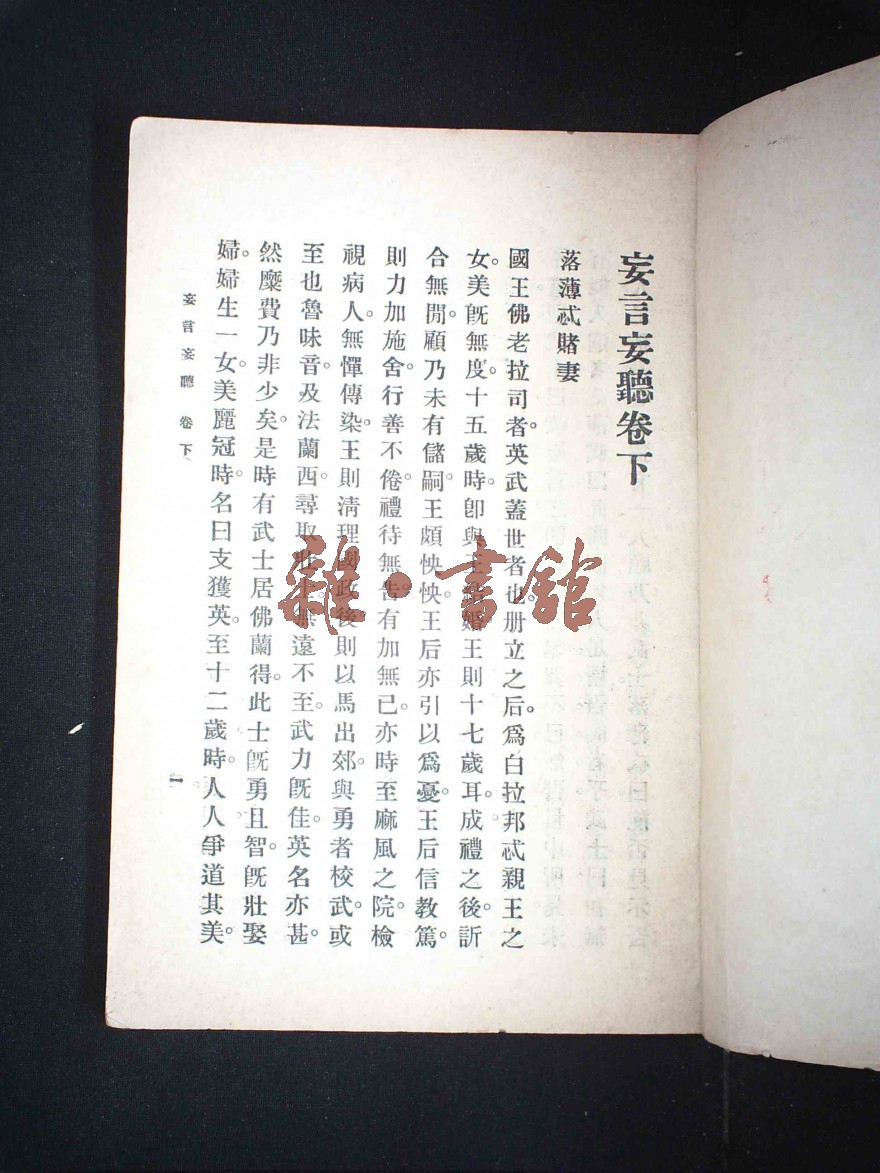 妄言妄聽卷下
落薄忒賭妻
國王佛老拉司者。英武蓋世者也。册立之后。爲白拉邦忒親王之
女。美旣無度。十五歲時。卽與王結婚。王則十七歲耳。成禮之後。訢
合無閒。顧乃未有儲嗣。王頗怏怏。王后亦引以爲憂。王后信教篤。
則力加施舍。行善不倦。禮待無告。有加無已。亦時至麻風之院。檢
視病人。無憚傳染。王則淸理國政後。則以馬出郊。與勇者校武。或
至也魯昧音。及法蘭西。尋取壯士。無遠不至。武力旣佳。英名亦甚。
然糜費乃非少矣。是時有武士居佛蘭得。此士旣勇且智。旣壯娶
婦。婦生一女。美麗冠時。名曰支獲英。至十二歲時。人人爭道其美。
妄言妄聽 卷下
一
雜·書館